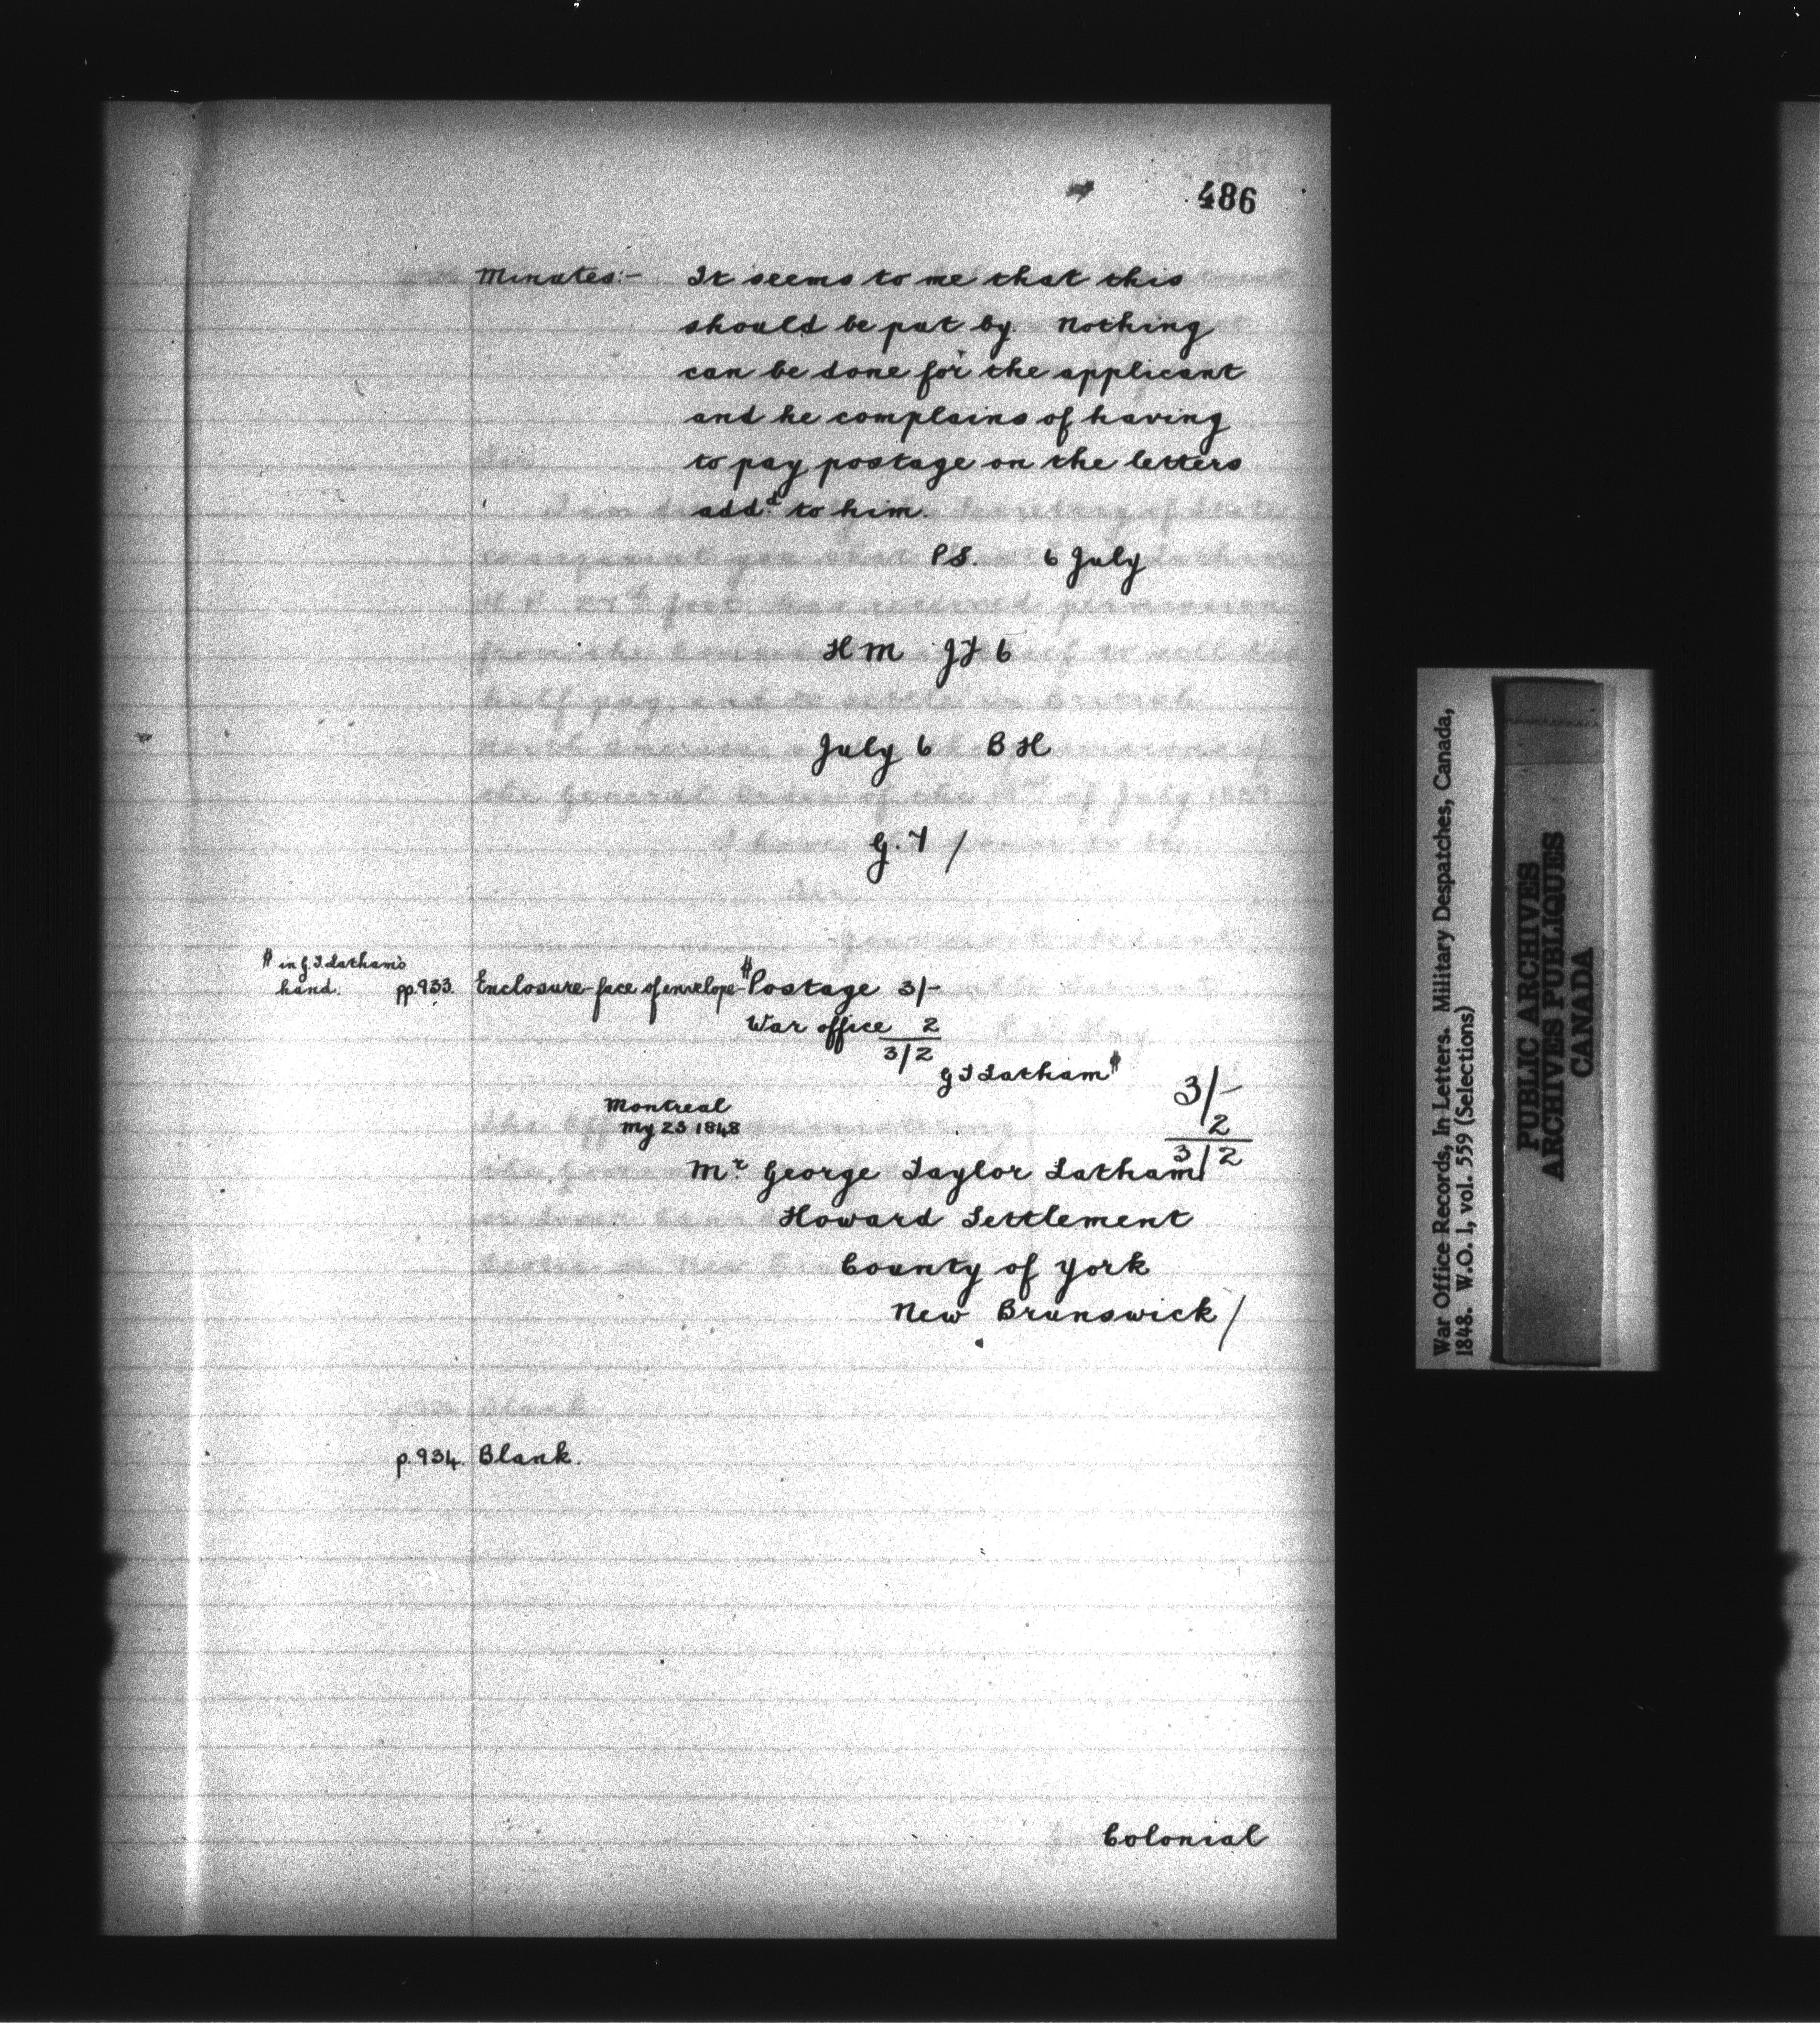 486
Minutes:- It seems to me that this
should be put by. Nothing
can be done for the applicant
and he complains of having
to pay postage on the letters
addd. to him.
P.S. 6 July
H M JF 6
July 6 B H
G. 7 /
# in G. T. Latham's
hand.
pp. 933. Enclosure-face of envelope- #Postage 3/-
War office 2
3/2
G T Latham#
3/-
2
3/2
Montreal
My 23 1848
Mr. George Taylor Latham
Howard Settlement
County of York
New Brunswick/
p. 934. Blank.
Colonial
War Office Records, In Letters. Military Despatches, Canada,
1848. W.O. 1, vol. 559 (Selections)
PUBLIC ARCHIVES
ARCHIVES PUBLIQUES
CANADA